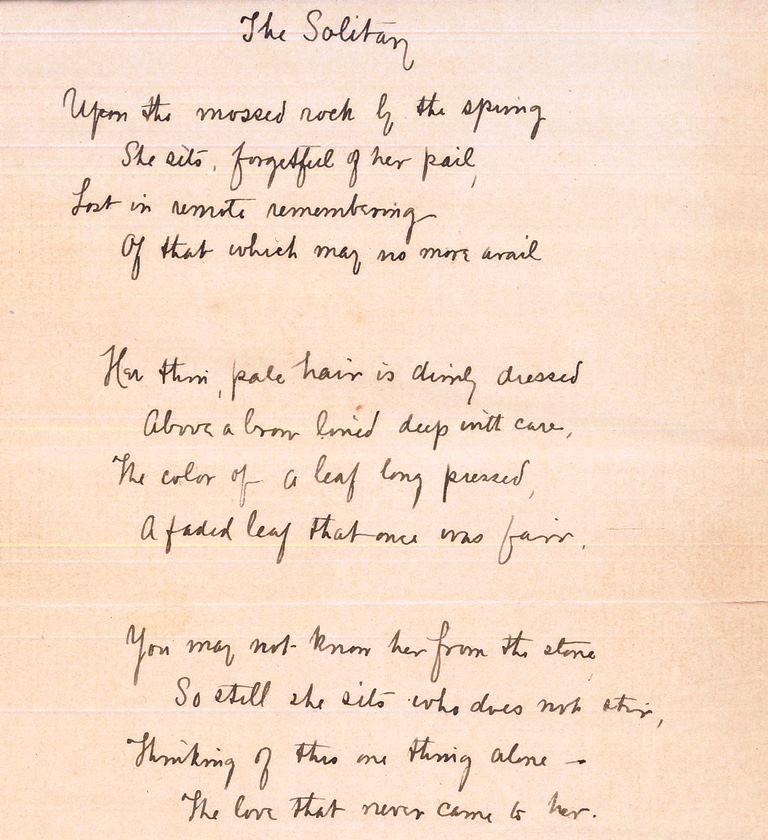 The Solitary
Upon the mossed rock by the spring
She sits, forgetful of her pail,
Lost in remote remembering
Of that which may no more avail
Her thin, pale hair is dimly dressed
Above a brow lined deep with care,
The color of a leaf long pressed,
A faded leaf that once was fair.
You may not know her from the stone
So still she sits who does not stir,
Thinking of this one thing alone —
The love that never came to her.